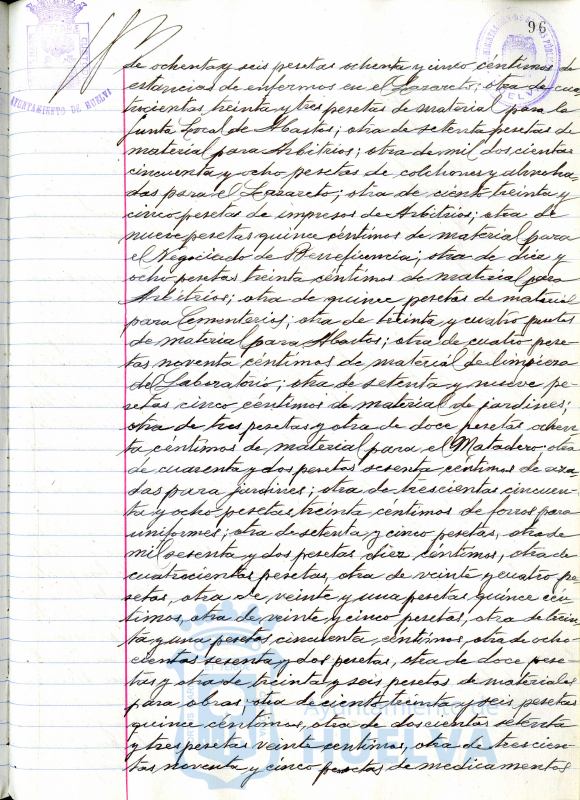 96
AYUNTAMIENTO DE HUELVA
de ochenta y seis pesetas ochenta y cinco centimos de
estancias de enfermos en el Lazareto; otra de cua
trocientas treinta y tres pesetas de material para la
Junta Local de Abastos; otra de setenta pesetas de
material para Arbitrios; otra de mil doscientas
cincuenta y ocho pesetas de colchones y almoha-
das para el Lazareto; otra de ciento treinta y
cinco pesetas de impresos de Arbitrios; otra de
nueve pesetas quince céntimos de material para
el Negociado de Beneficencia; otra de diez y
ocho pesetas treinta céntimos de material para
Arbitrios; otra de quince pesetas de material
para Cementerios; otra de treinta y cuatro pesetas
de material para Abastos; otra de cuatro pese
tas noventa céntimos de material de limpieza
de Laboratorio; otra de setenta y nueve pe-
setas cinco céntimos de material de jardines;
otra de tres pesetas y otra de doce pesetas ochen
ta céntimos de material para el Matadero; otra
de cuarenta y dos pesetas sesenta céntimos de aza
das para jardines; otra de trescientas cincuen-
ta y ocho pesetas treinta céntimos de forros para
uniformes; otra de setenta y cinco pesetas, otra de
mil sesenta y dos pesetas diez céntimos, otra de
cuatrocientas pesetas, otra de veinte y cuatro pe
setas, otra de veinte y una pesetas quince cén
timos, otra de veinte y cinco pesetas, otra de trein
ta y una pesetas cincuenta céntimos, otra de ocho
cientas sesenta y dos pesetas, otra de doce pese
tas y otra de treinta y seis pesetas de materiales
para obras; otra de ciento treinta y seis pesetas
quince céntimos, otra de doscientas setenta
y tres pesetas veinte céntimos, otra de trescien
tas noventa y cinco pesetas de medicamentos
Ayuntamiento de
HUELVA